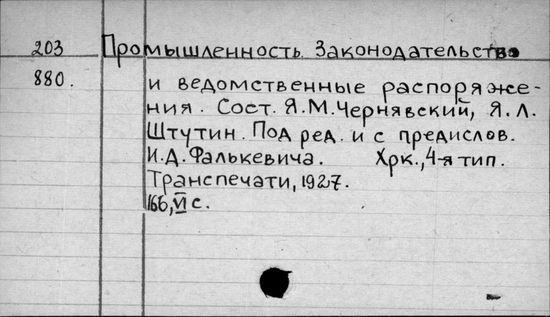 203 Промышленность. Законодательство
880. и ведомственные распоряже-
ния. Сост. Я.М.Чернявский, Я.Л.
Штутин. Под ред. и с предислов.
И.Д.Фалькевича. Хрк., 4-я тип.
Транспечати, 1927.
166, VI с.